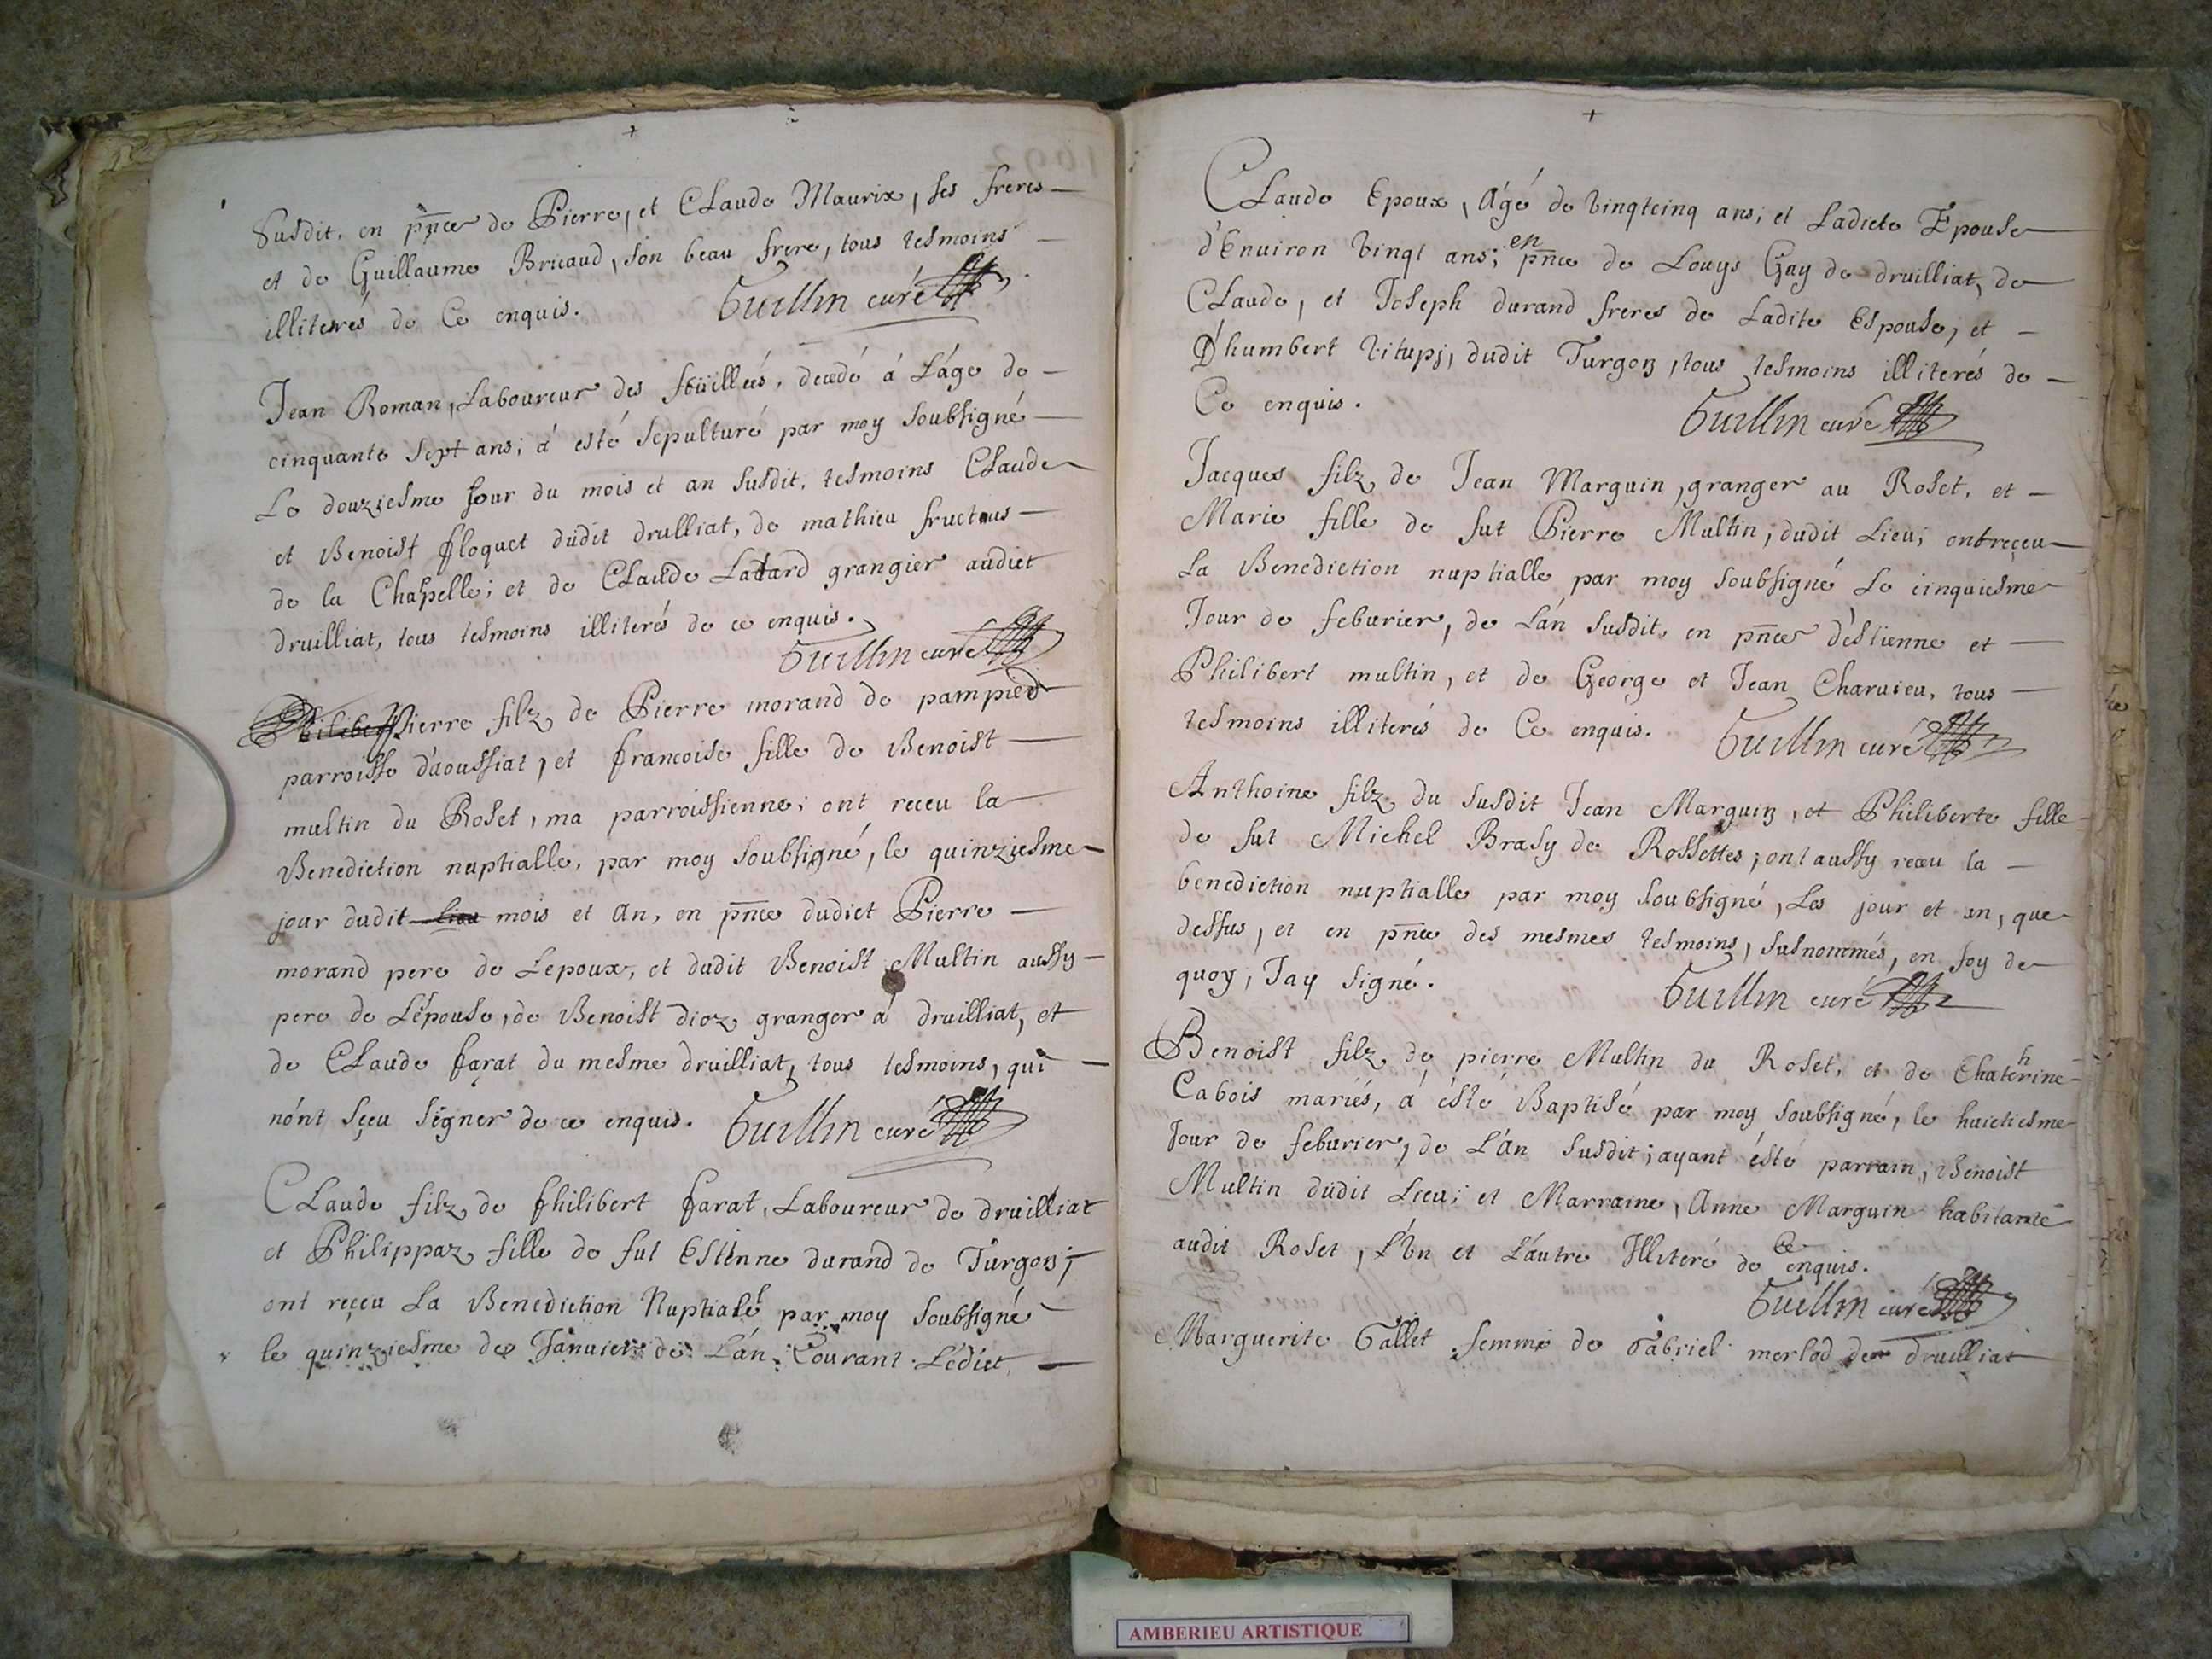 Susdit, en pñce de Pierre, et Claude Maurix, ses freres
et de Guillaume Bricaud, son beau frere, tous tesmoins
illiterés de Ce enquis. Guillin curé
Jean Roman, Laboureur des feüillées, decedé á L'áge de
cinquante sept ans; á esté sepulturé par moy soubsigné
Le douziesme Jour du mois et an susdit, tesmoins Claude
et Benoist floquet düdit drulliat, de mathieu fructus
de la Chapelle; et de Claude Ladard grangier audict
druilliat, tous tesmoins illiterés de ce enquis.
Guillin curé
Philibert Pierre filz de Pierre morand de pampied
parroisse d'aoussiat, et francoise fille de Benoist
multin du Roset, ma parroissienne; ont receu la
Benediction nuptialle, par moy soubsigné, le quinziesme
jour dudit lieu mois et an, en pñce dudict Pierre
morand pere de Lepoux, et dudit Benoist Multin aussy
pere de L'épouse, de Benoist dioz granger á druilliat, et
de Claude farat du mesme druilliat, tous tesmoins, qui
nónt sçeu signer de ce enquis. Guillin curé
Claude filz de philibert farat, Laboureur de druilliat
et Philippaz fille de fut Estinne durand de Turgon;
ont reçeu La Benediction Nuptiale par moy soubsigné
le quinziesme de Januier de L'án Courant Lédict
Claude Epoux, Ágé de vingtcinq ans; et Ladicte Epouse
d'Enuiron vingt ans; en pñce de Louys Gay de druilliat, de
Claude, et Joseph durand freres de Ladite Espouse, et
D'humbert vitupj, dudit Turgon, tous tesmoins illiterés de
Ce enquis. Guillin curé
Jacques filz de Jean Marguin, granger au Roset, et
Marie fille de fut Pierre Multin; dudit Lieu; ont reçeu
La Benediction nuptialle par moy soubsigné Le cinquiesme
Jour de feburier, de L'án susdit, en pñce d'éstienne et
Philibert multin, et de George et Jean Charuieu, tous
tesmoins illiterés de Ce enquis. Guillin curé
Anthoine filz du susdit Jean Marguin, et Philiberte fille
de fut Michel Brasy de Rossettes; ont aussy receu la
benediction nuptialle par moy soubsigné, Les jour et an, que
dessus, et en pñce des mesmes tesmoins, susnommés, en foy de
quoy, Jay signé. Guillin curé
Benoist filz de pierre Multin du Roset, et de Chatherine
Cabois mariés, á ésté Baptisé par moy soubsigné, le huictiesme
Jour de feburier, de L'án susdit; ayant ésté parrain, Benoist
Multin düdit Lieu; et Marraine, Anne Marguin habitante
audit Roset, L'Vn et L'autre Illiteré de Ce enquis.
Guillin curé
Marguerite Gallet femme de Gabriel merlod de druilliat
AMBERIEU ARTISTIQUE